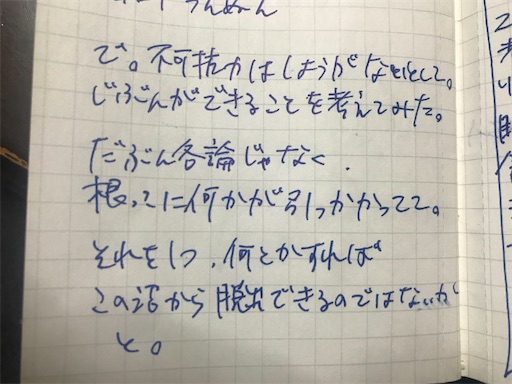 うんぬん
で。不可抗力はしょうがないとして。
じぶんができることを考えてみた。
たぶん各論じゃなく、
根っこに何かが引っかかってて。
それを1つ、何とかすれば
この沼から脱出できるのではないか
と。